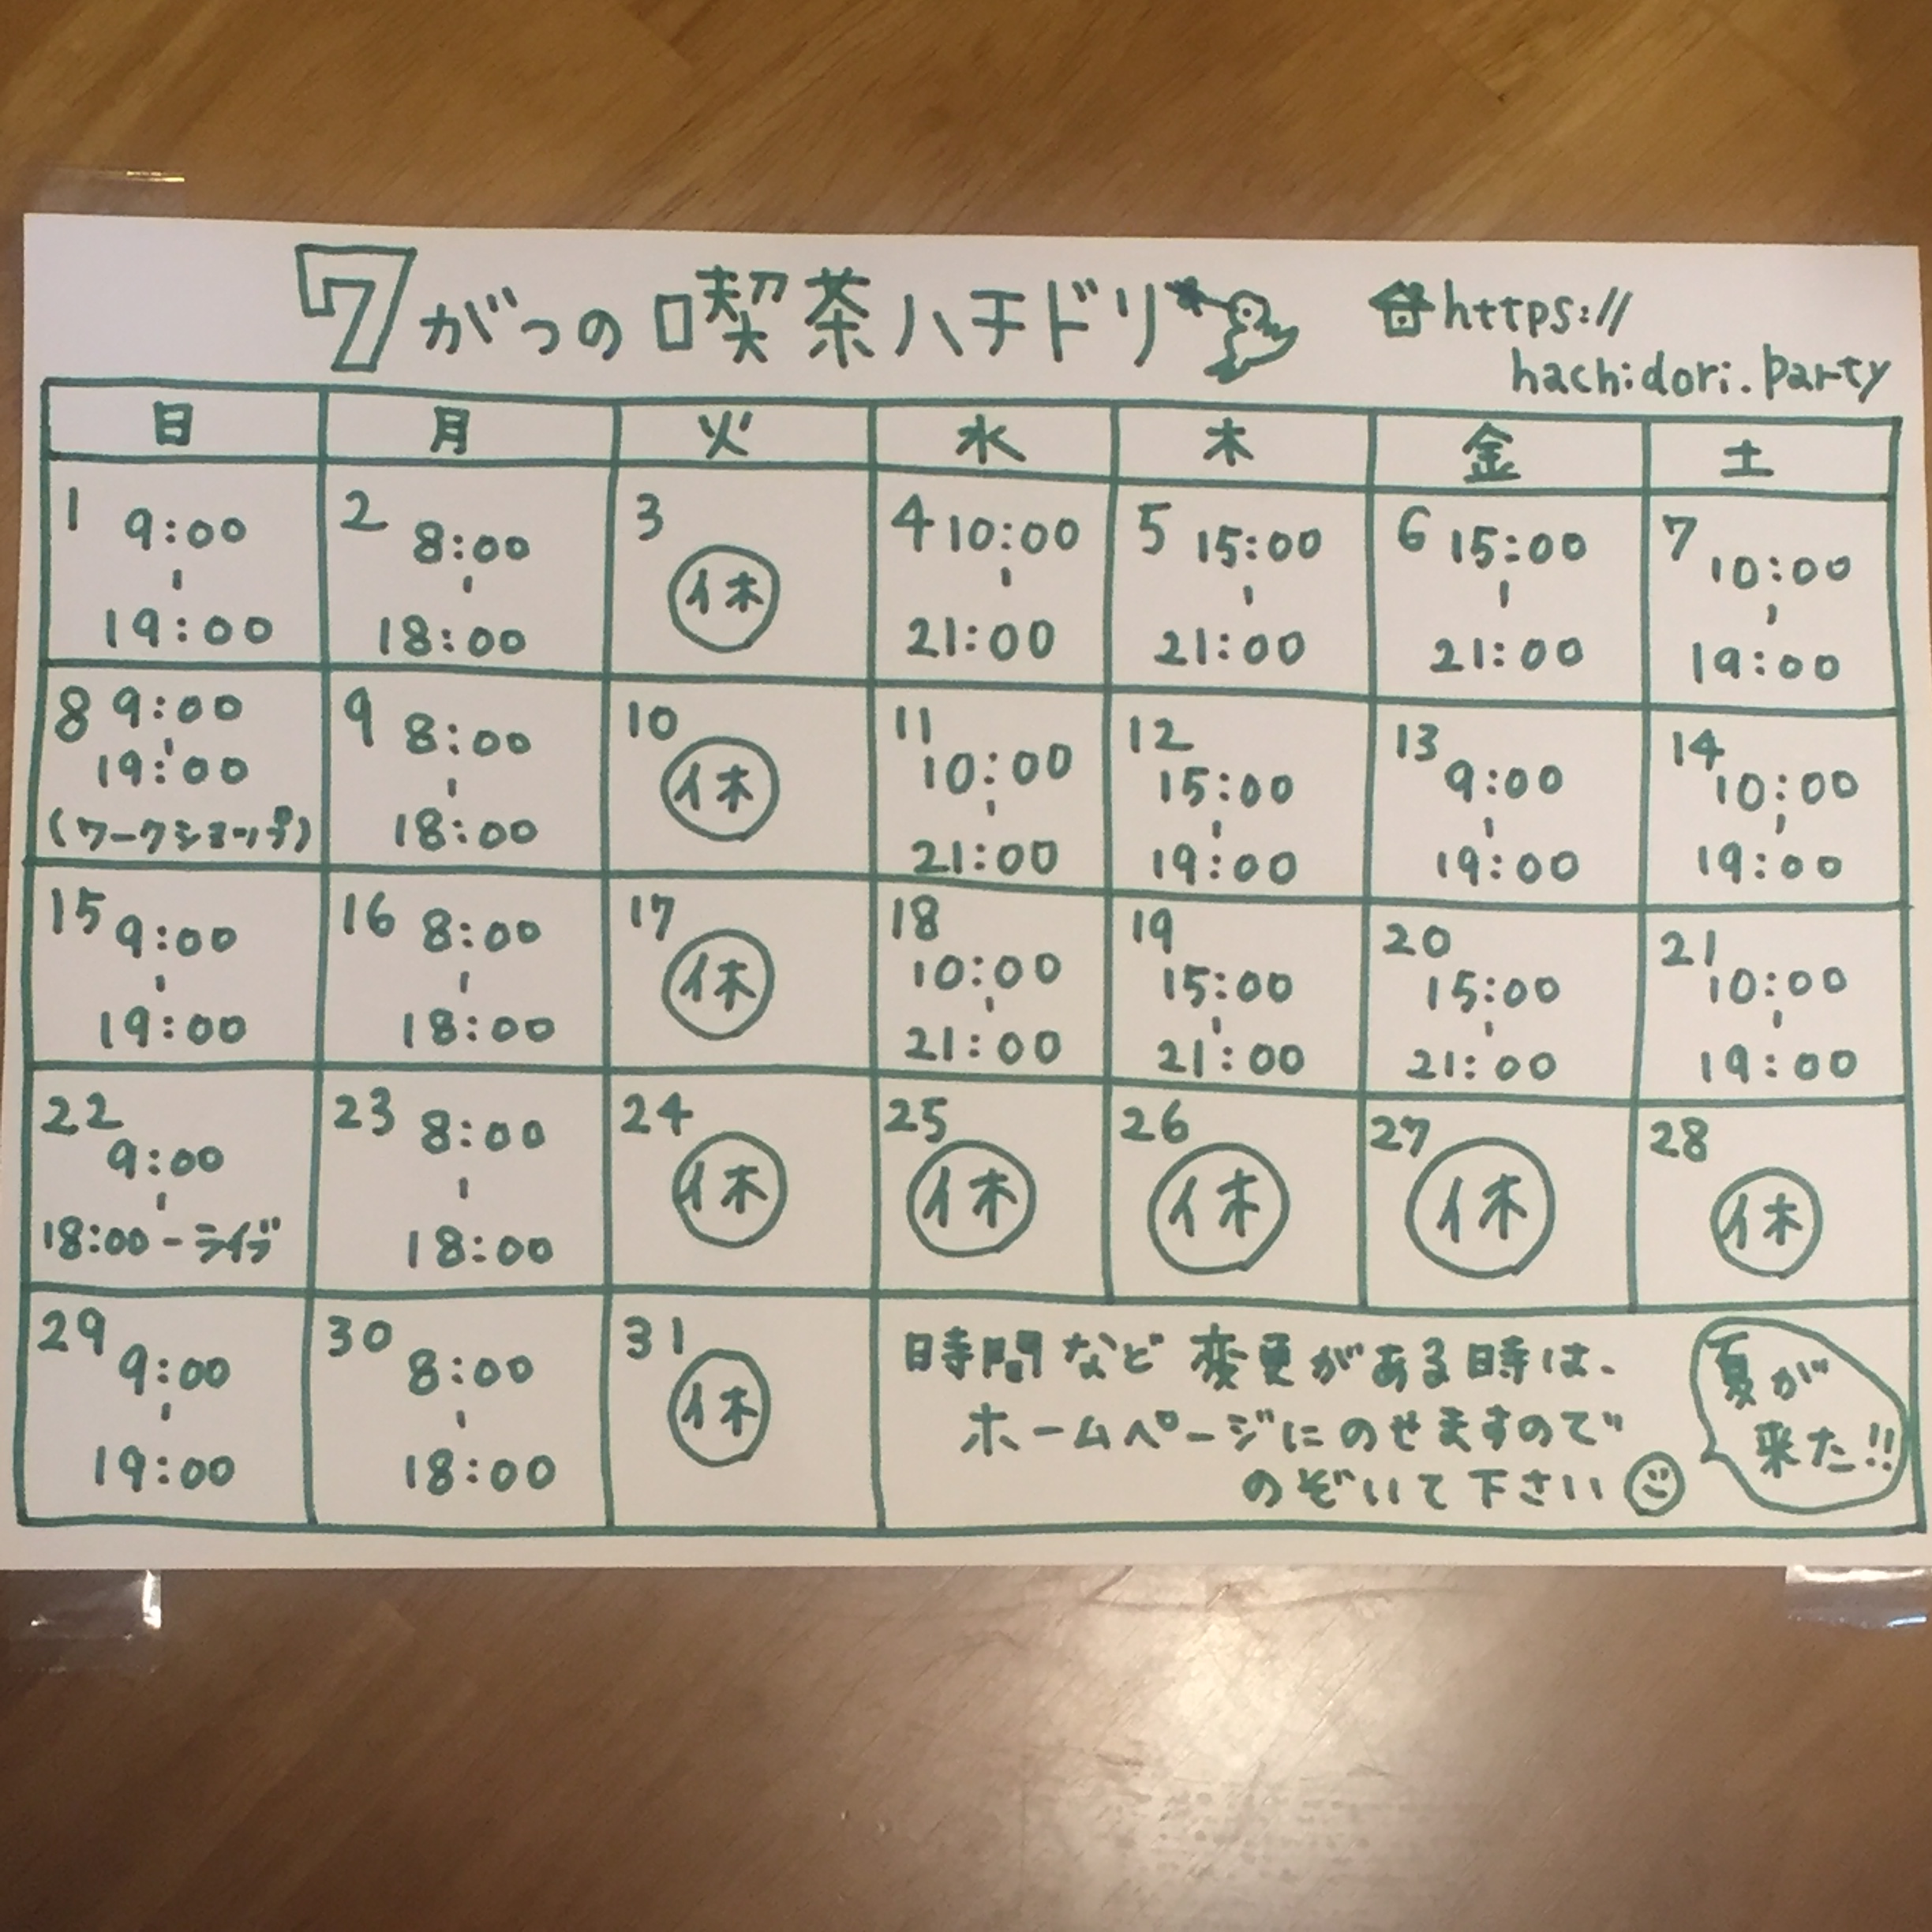 7がつの喫茶ハチドリ
https://
hachidori.party
日 月 火 水 木 金 土
1 9:00 - 19:00
2 8:00 - 18:00
3 休
4 10:00 - 21:00
5 15:00 - 21:00
6 15:00 - 21:00
7 10:00 - 19:00
8 9:00 - 19:00
(ワークショップ)
9 8:00 - 18:00
10 休
11 10:00 - 21:00
12 15:00 - 19:00
13 9:00 - 19:00
14 10:00 - 19:00
15 9:00 - 19:00
16 8:00 - 18:00
17 休
18 10:00 - 21:00
19 15:00 - 21:00
20 15:00 - 21:00
21 10:00 - 19:00
22 9:00 -
18:00-ライブ
23 8:00 - 18:00
24 休
25 休
26 休
27 休
28 休
29 9:00 - 19:00
30 8:00 - 18:00
31 休
時間など変更がある時は、
ホームページにのせますので
のぞいて下さい
夏が
来た!!